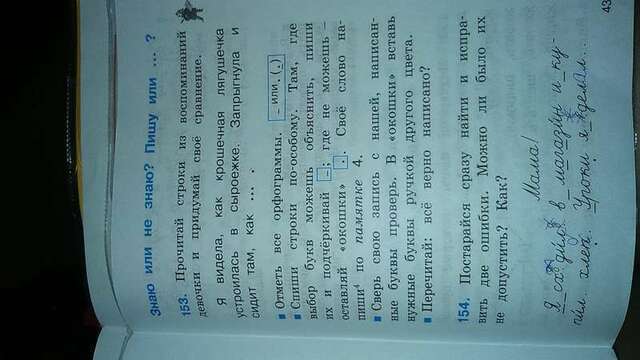 Знаю или не знаю? Пишу или ... ?
153. Прочитай строки из воспоминаний
девочки и придумай своё сравнение.
Я видела, как крошечная лягушечка
устроилась в сыроежке. Запрыгнула и
сидит там, как ... .
▪ Отметь все орфограммы. _ или . (.)
▪ Спиши строки по-особому. Там, где
выбор букв можешь объяснить, пиши
их и подчёркивай _; где не можешь –
оставляй «окошки» . . Своё слово на-
пиши⁴ по памятке 4.
▪ Сверь свою запись с нашей, написан-
ные буквы проверь. В «окошки» вставь
нужные буквы ручкой другого цвета.
▪ Перечитай: всё верно написано?
154. Постарайся сразу найти и испра-
вить две ошибки. Можно ли было их
не допустить? Как?
Мама!
Я сх дил в магазин и ку-
пил хлеп. Уроки я делал.
43